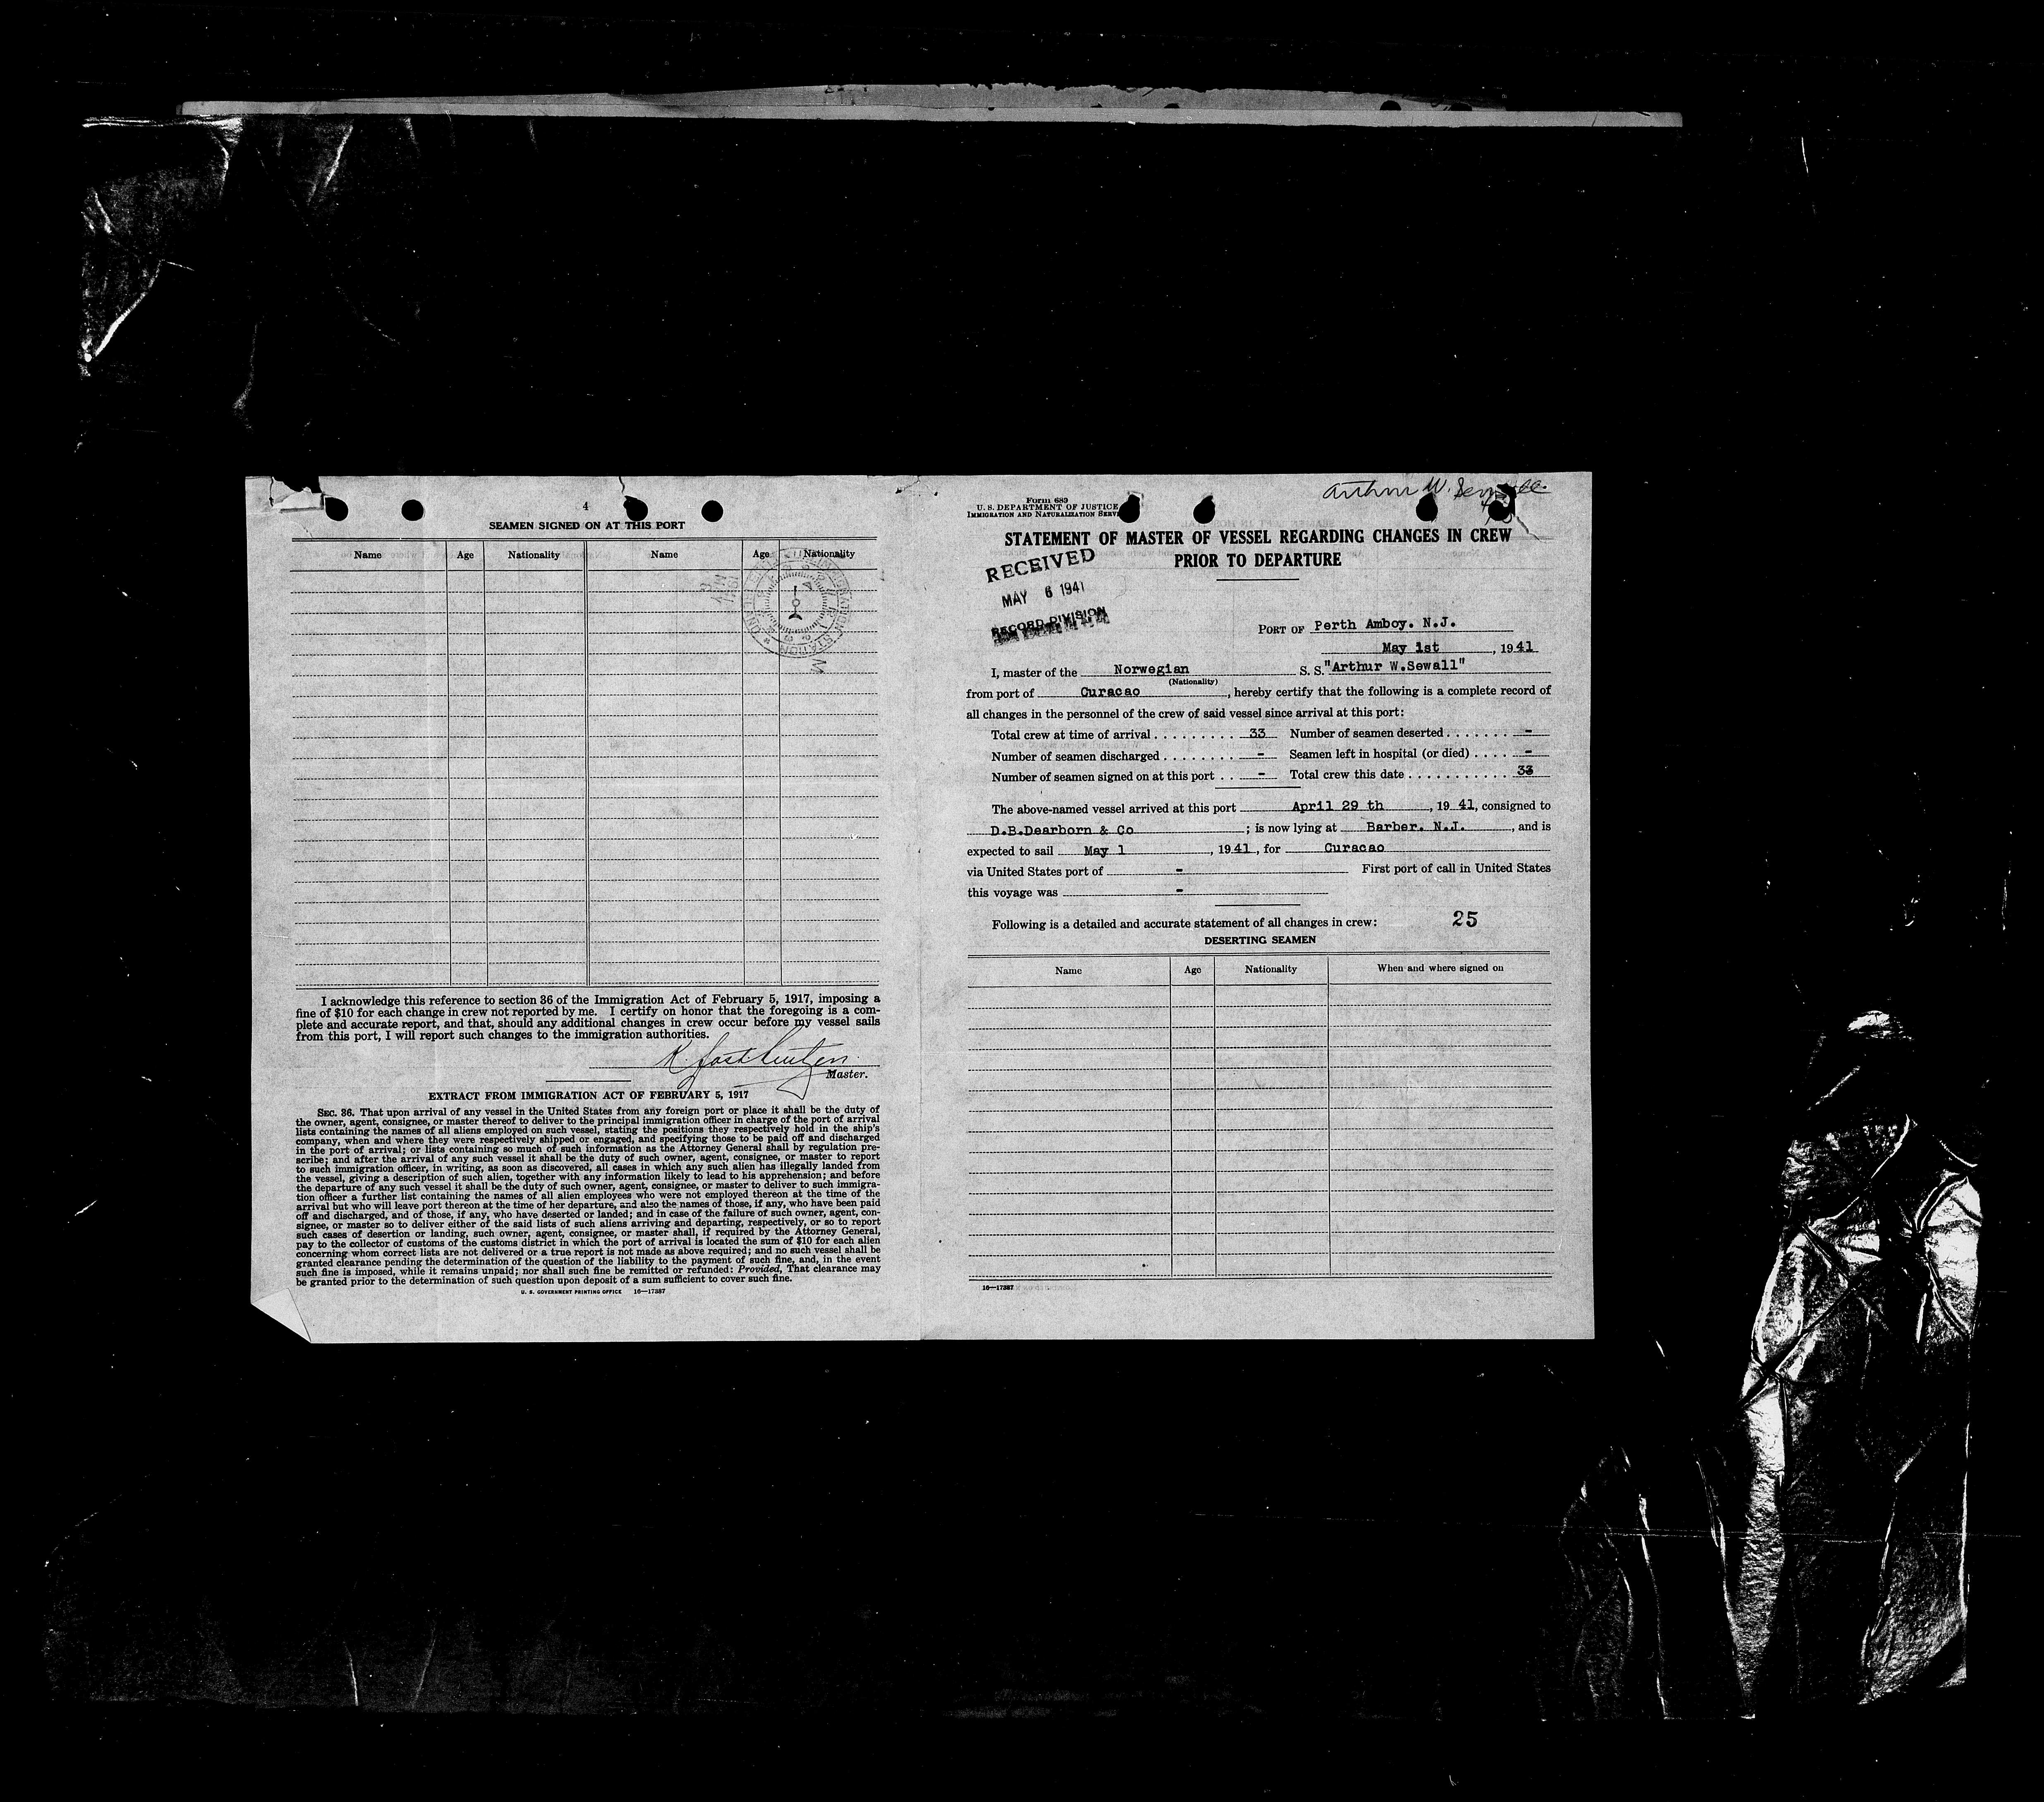 4
SEAMEN SIGNED ON AT THIS PORT
Name Age Nationality Name Age Nationality
I acknowledge this reference to section 36 of the Immigration Act of February 5, 1917, imposing a
fine of $10 for each change in crew not reported by me. I certify on honor that the foregoing is a com-
plete and accurate report, and that, should any additional changes in crew occur before my vessel sails
from this port, I will report such changes to the immigration authorities.
K.
Master.
EXTRACT FROM IMMIGRATION ACT OF FEBRUARY 5, 1917
SEC. 36. That upon arrival of any vessel in the United States from any foreign port or place it shall be the duty of
the owner, agent, consignee, or master thereof to deliver to the principal immigration officer in charge of the port of arrival
lists containing the names of all aliens employed on such vessel, stating the positions they respectively hold in the ship's
company, when and where they were respectively shipped or engaged, and specifying those to be paid off and discharged
in the port of arrival; or lists containing so much of such information as the Attorney General shall by regulation pre-
scribe; and after the arrival of any such vessel it shall be the duty of such owner, agent, consignee, or master to report
to such immigration officer, in writing, as soon as discovered, all cases in which any such alien has illegally landed from
the vessel, giving a description of such alien, together with any information likely to lead to his apprehension; and before
the departure of any such vessel it shall be the duty of such owner, agent, consignee, or master to deliver to such immigra-
tion officer a further list containing the names of all alien employees who were not employed thereon at the time of the
arrival but who will leave port thereon at the time of her departure, and also the names of those, if any, who have been paid
off and discharged, and of those, if any, who have deserted or landed; and in case of the failure of such owner, agent, con-
signee, or master so to deliver either of the said lists of such aliens arriving and departing, respectively, or so to report
such cases of desertion or landing, such owner, agent, consignee, or master shall, if required by the Attorney General,
pay to the collector of customs of the customs district in which the port of arrival is located the sum of $10 for each alien
concerning whom correct lists are not delivered or a true report is not made as above required; and no such vessel shall be
granted clearance pending the determination of the question of the liability to the payment of such fine, and, in the event
such fine is imposed, while it remains unpaid; nor shall such fine be remitted or refunded: Provided, That clearance may
be granted prior to the determination of such question upon deposit of a sum sufficient to cover such fine.
U. S. GOVERNMENT PRINTING OFFICE 16—17387
Arthur W. Sewall
Form 689
U. S. DEPARTMENT OF JUSTICE
IMMIGRATION AND NATURALIZATION SERV
STATEMENT OF MASTER OF VESSEL REGARDING CHANGES IN CREW
PRIOR TO DEPARTURE
RECEIVED
MAY 6 1941
RECORD DIVISION
PORT OF Perth Amboy. N.J.
May 1st, 1941
I, master of the Norwegian S. S. "Arthur W.Sewall"
(Nationality)
from port of Curacao, hereby certify that the following is a complete record of
all changes in the personnel of the crew of said vessel since arrival at this port:
Total crew at time of arrival . . . . . . . . . 33 Number of seamen deserted . . . . . . . -
Number of seamen discharged . . . . . . . . - Seamen left in hospital (or died) . . . . -
Number of seamen signed on at this port . . - Total crew this date . . . . . . . . . . . 33
The above-named vessel arrived at this port April 29 th, 19 41, consigned to
D.B.Dearborn & Co; is now lying at Barber. N.J., and is
expected to sail May 1, 1941, for Curacao
via United States port of - First port of call in United States
this voyage was -
Following is a detailed and accurate statement of all changes in crew: 25
DESERTING SEAMEN
Name Age Nationality When and where signed on
16—17387